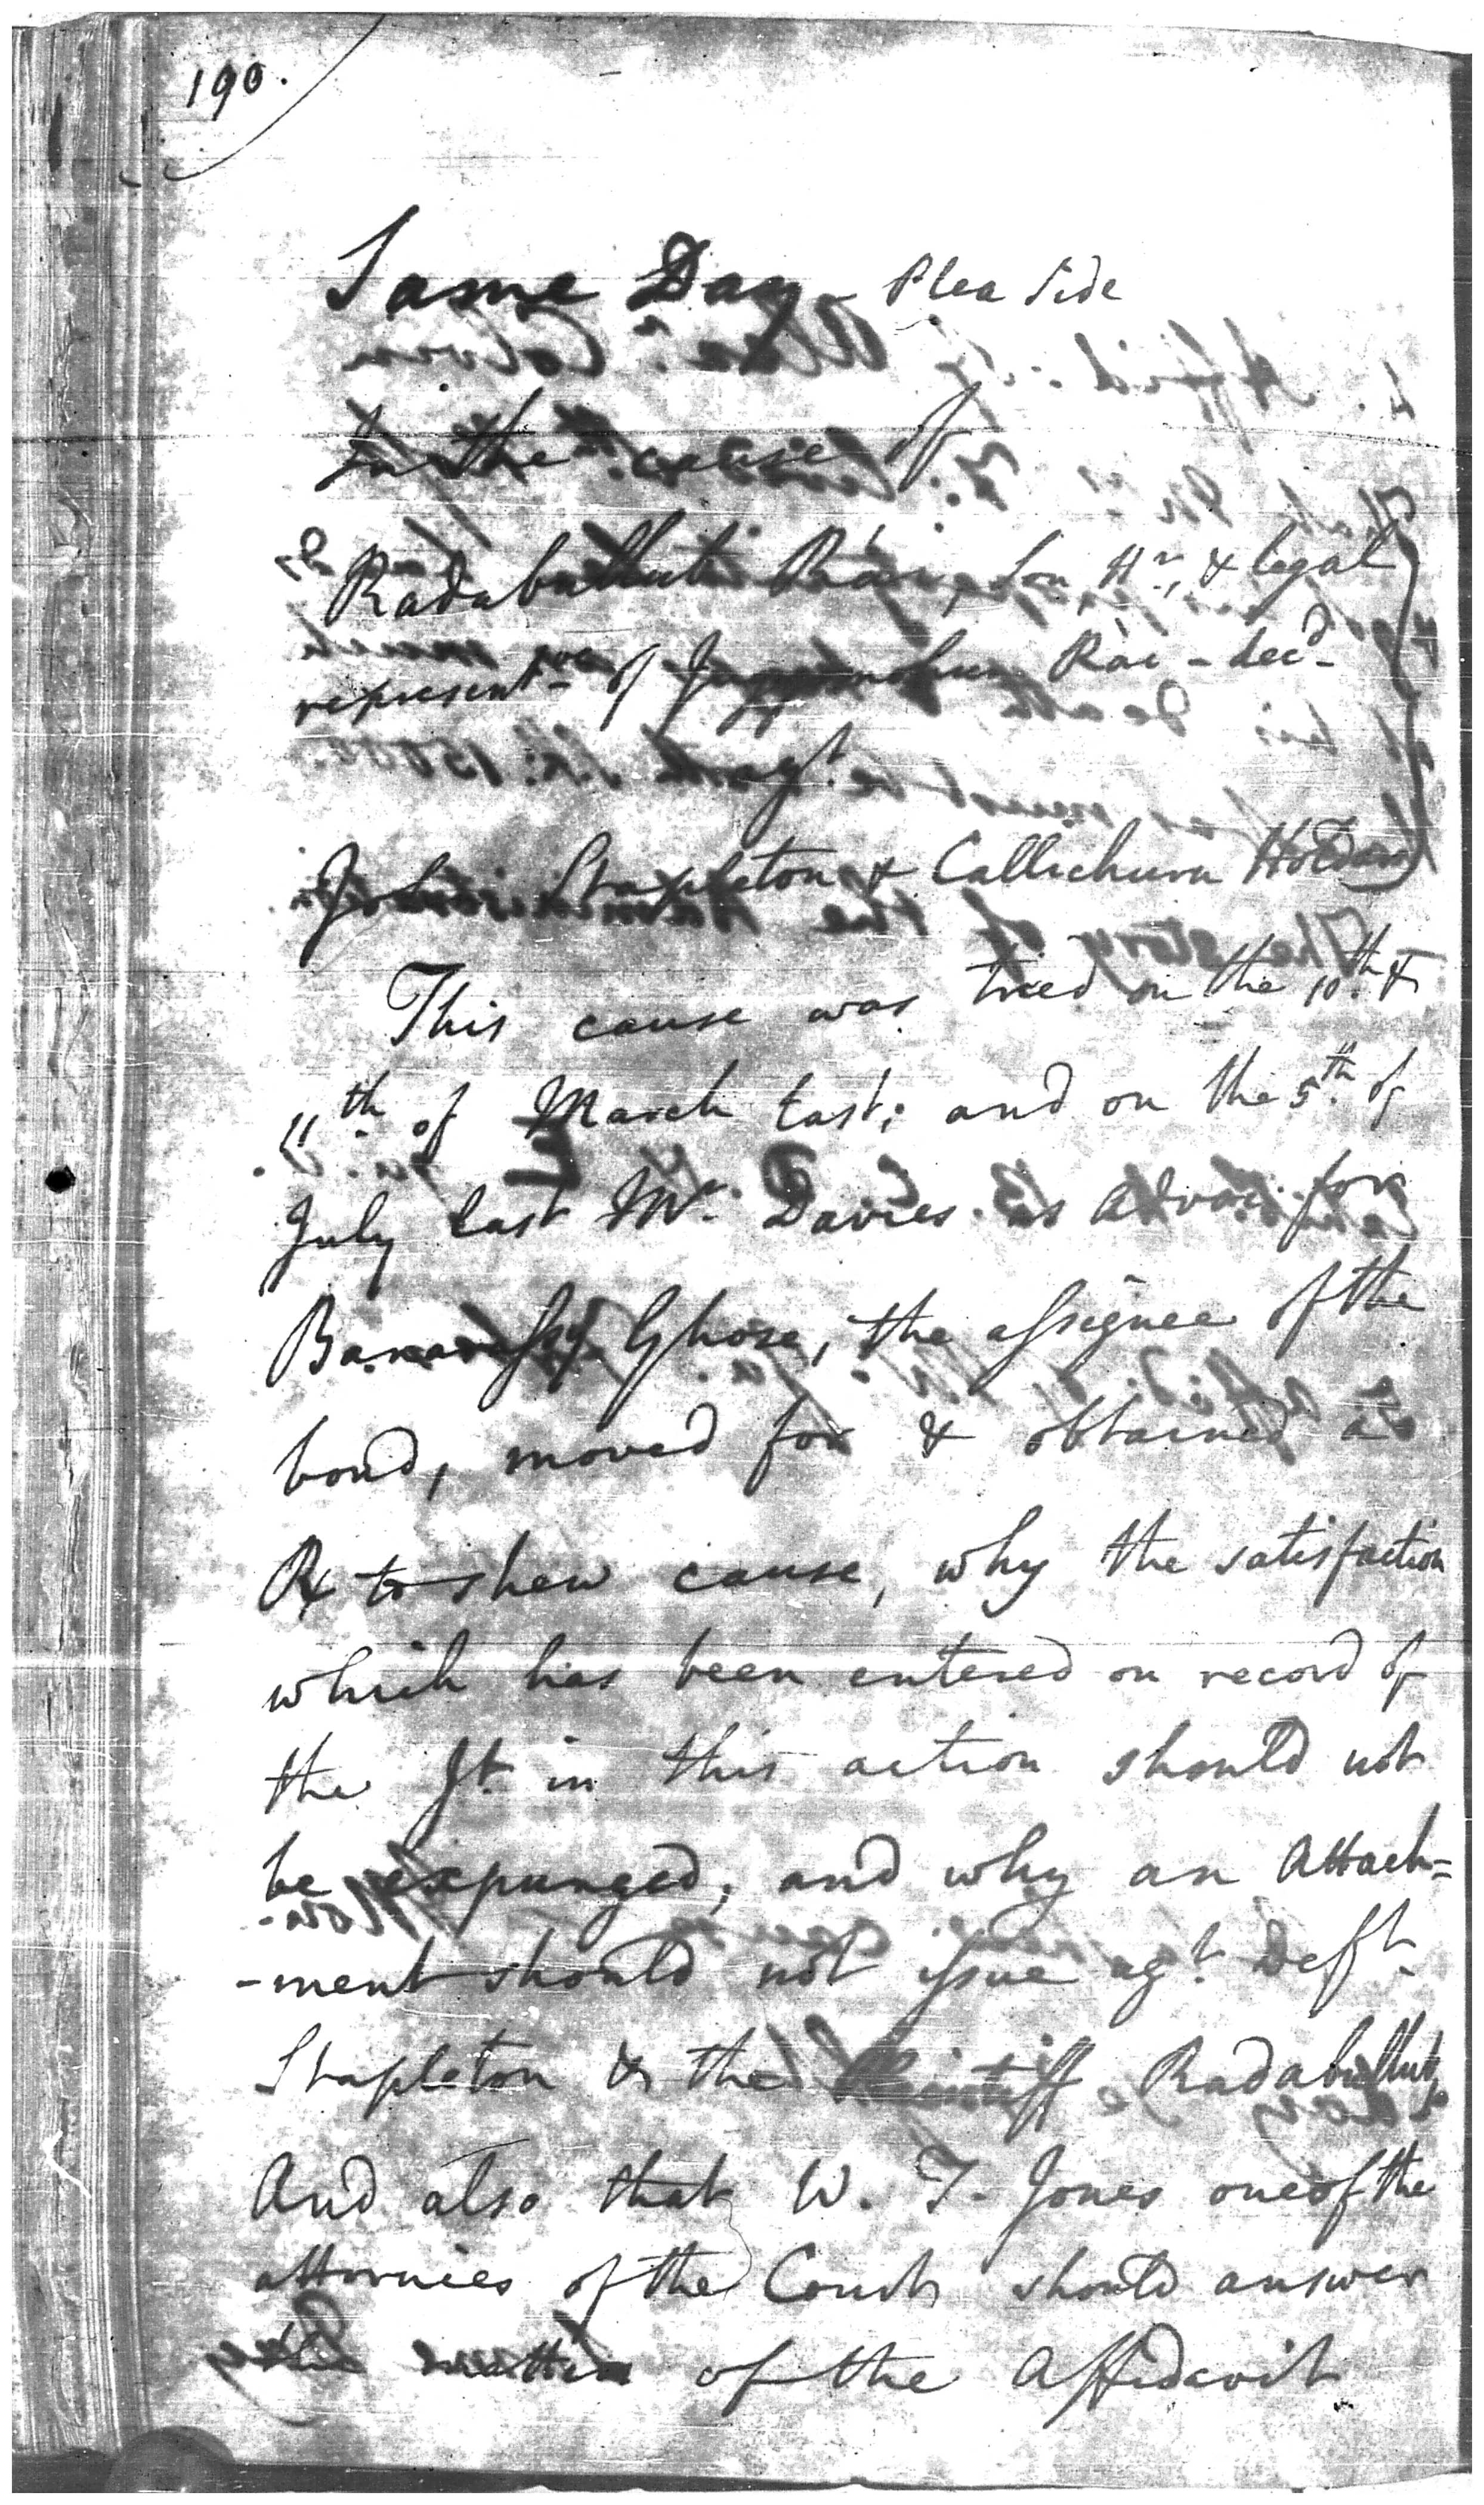 190.
Same Day - Plea Side
In the cause of
Radabullub Rái, Son, Hr., & legal
representve of Juggomohun Rái - decd -
agt.
John Stapleton & Callichurn Holdar
This cause was tried on the 10th. &
11th. of March last; and on the 5th. of
July last Mr. Davies as advoc. for
Ghose, the assignee of the
bond, moved for & obtained a
R to shew cause, why the satisfaction
which has been entered on record of
the Jt. in this action should not
be expunged; and why an Attach=
-ment should not issue agt. Deft.
Stapleton & the Plaintiff Radabullub,
And also that W. T. Jones one of the
attornies of the Court should answer
the matter of the Affidavit